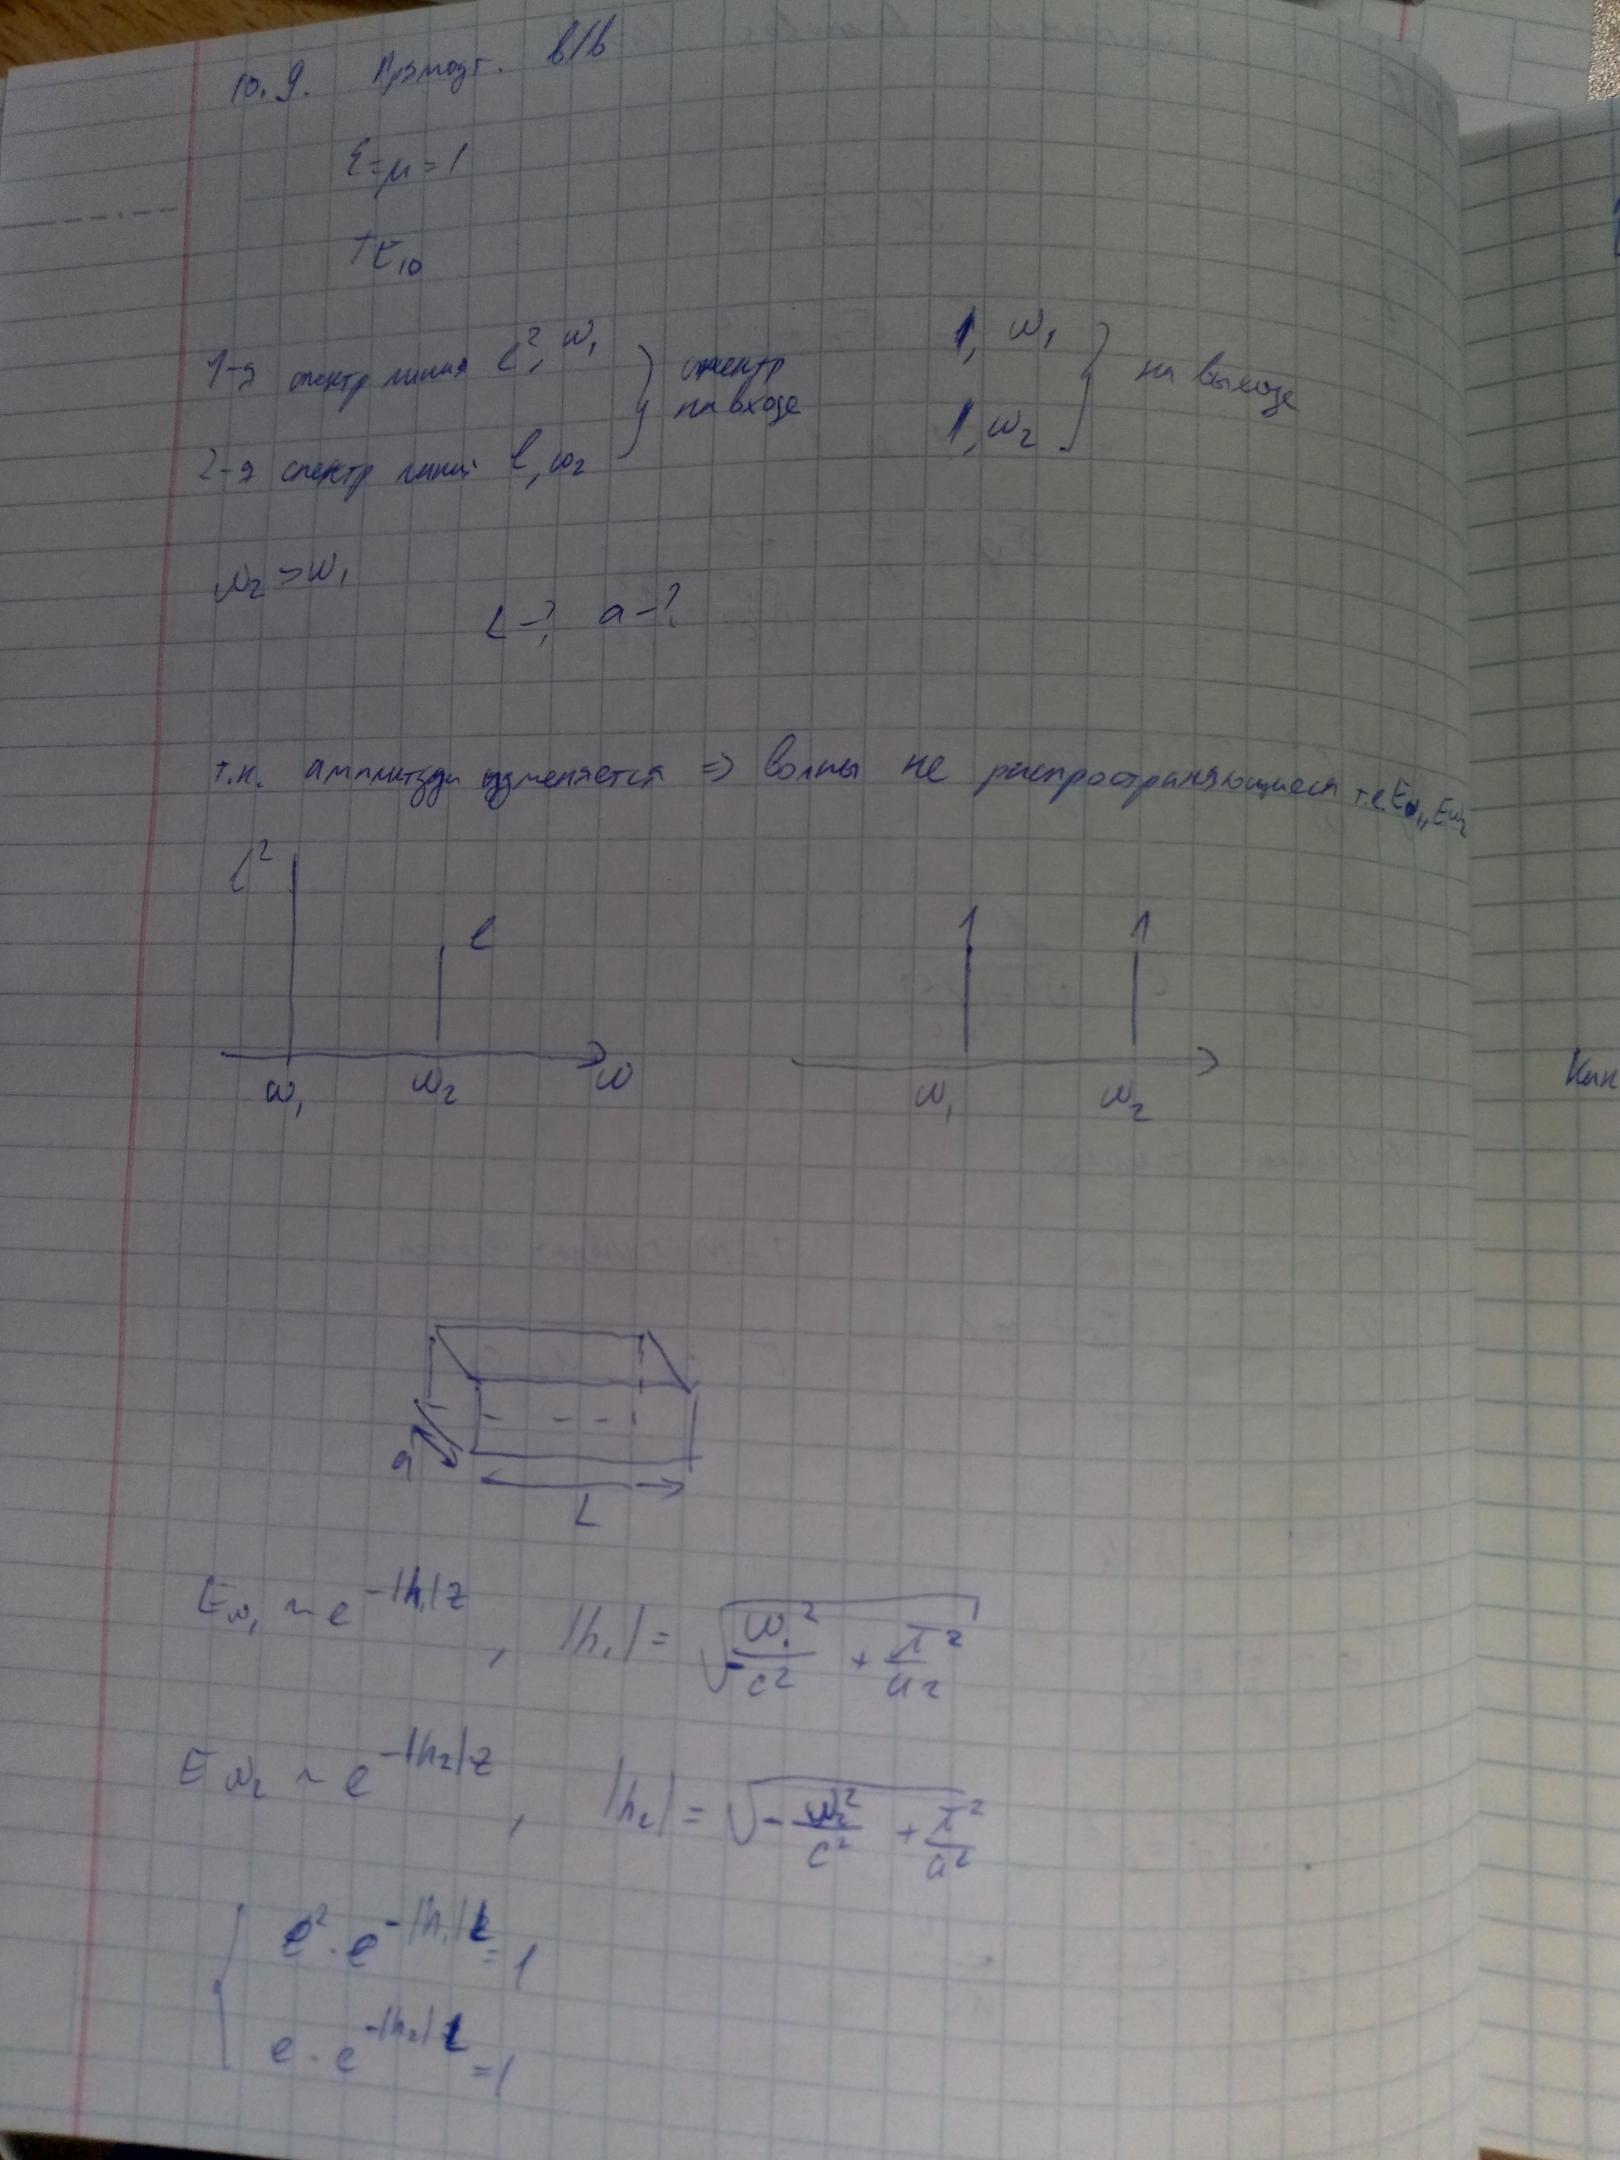 10.9. Прямоуг. в/в
ε=μ=1
TE₁₀
1-я спектр линия e², ω₁ } спектр на входе
1, ω₁ } на выходе
2-я спектр линия e, ω₂
1, ω₂
ω₂ > ω₁
L-? a-?
т.к. амплитуды изменяется => волны не распространяющиеся т.е. Eω₁, Eω₂
e²
e
1 1
ω₁ ω₂ ω
ω₁ ω₂
a
L
Eω₁ ~ e^{-|h₁|z}, |h₁| = √(-ω₁²/c² + π²/a²)
Eω₂ ~ e^{-|h₂|z}, |h₂| = √(-ω₂²/c² + π²/a²)
{ e² · e^{-|h₁|L} = 1
e · e^{-|h₂|L} = 1